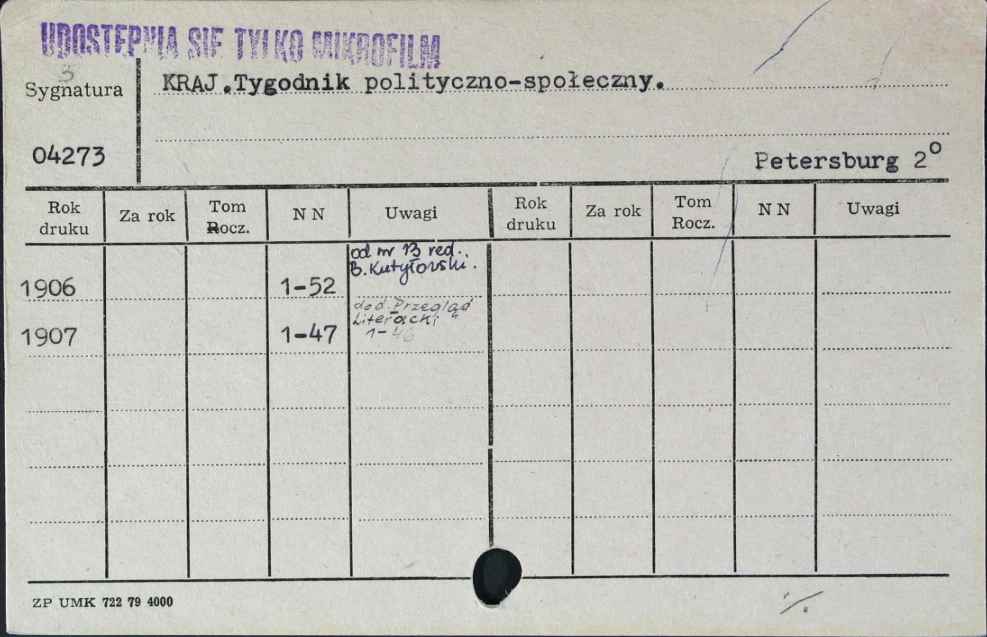 UDOSTĘPNIA SIĘ TYLKO MIKROFILM
3
Sygnatura
KRAJ.Tygodnik polityczno-społeczny.
04273
Petersburg 2°
Rok druku
Za rok
Tom Rocz.
N N
Uwagi
Rok druku
Za rok
Tom Rocz.
N N
Uwagi
od nr 13 red.
B. Kutyłowski.
1906
1-52
dod. Przegląd
Literacki"
1907
1-47
1-46
ZP UMK 722 79 4000